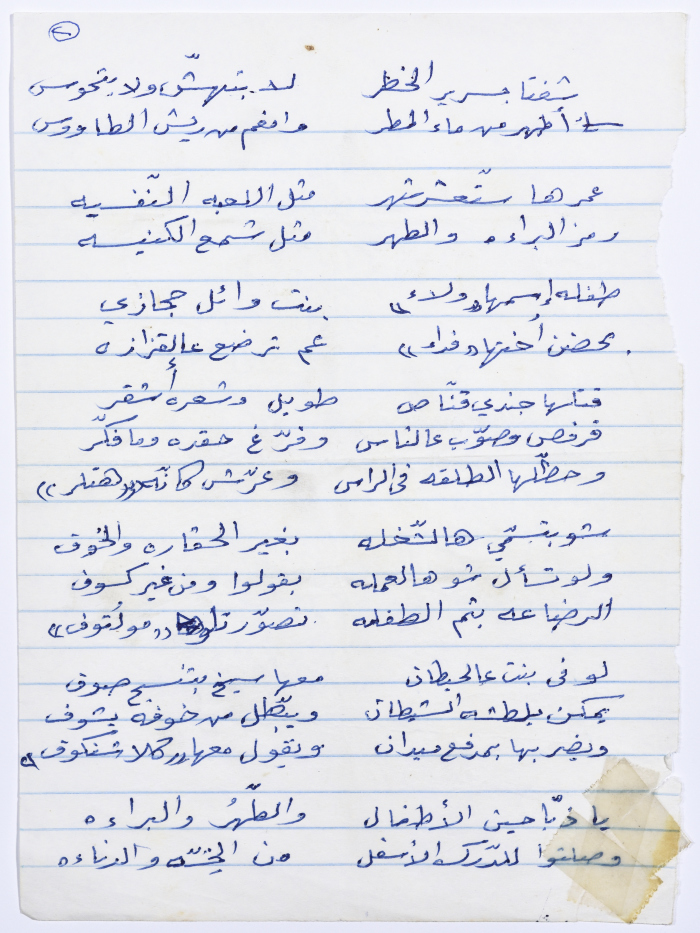 ٢
شفتا جسرير الخطر لا بتهشّ ولا بتحوس
أطهر من ماء المطر وأنعم من ريش الطاووس
عمرها ستّعشر شهر مثل اللعبه النّفسيه
رمز البراءه والطهر مثل شمع الكنيسه
طفله إسمها «ولاء» بنت وائل حجازي
بحضن أختها «فداء» عم ترضع عالقزازه
قتلها جندي قنّاص طويل وشعره أشقر
قرفص وصوّب عالناس وفرّغ حقده وما فكّر
وحطّلها الطلقه في الراس وعرّش كانّه «هتلر»
شو بتسمّي هالشّغله بغير الحقاره والخوف
ولو تسأل شو هالعمله بقولوا ومن غير كسوف
الرضاعه بثم الطفله تصوّرتا «مولوتوف»
لو في بنت عالحيطان معها سيخ بتنسج صوف
يمكن بلطشه الشيطان وبيضّل من خوفه يشوف
ويضربها بمدفع ميدان وبقول معها «كلاشنكوف»
يا ذبّاحين الأطفال والطّهرُ والبراءه
وصلتوا للدّرك الأسفل من الخسّه والدناءه